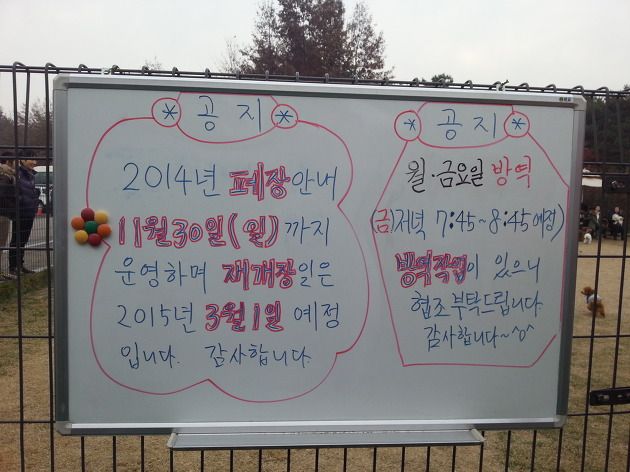 * 공지 *
2014년 폐장안내
11월30일(일)까지
운영하며 재개장일은
2015년 3월1일 예정
입니다. 감사합니다.
* 공지 *
월·금요일 방역
(금)저녁 7:45~8:45예정)
방역작업이 있으니
협조부탁드립니다.
감사합니다~^o^